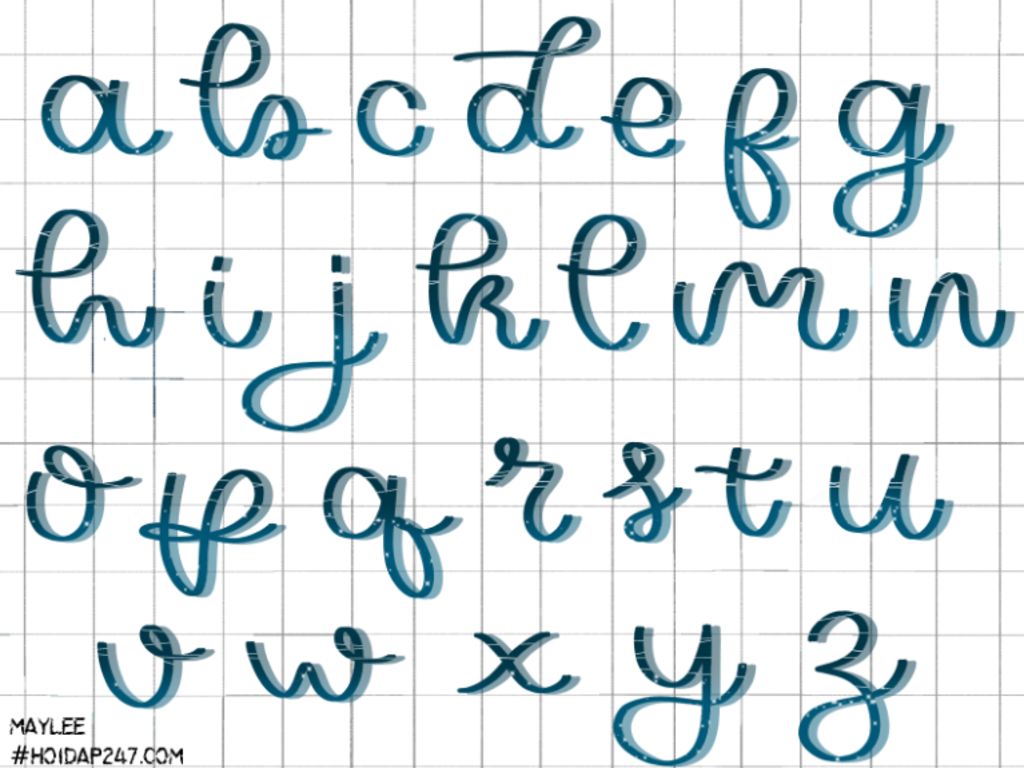 a b c d e f g
h i j k l m n
o p q r s t u
v w x y z
MAYLEE
#HOIDAP247.COM